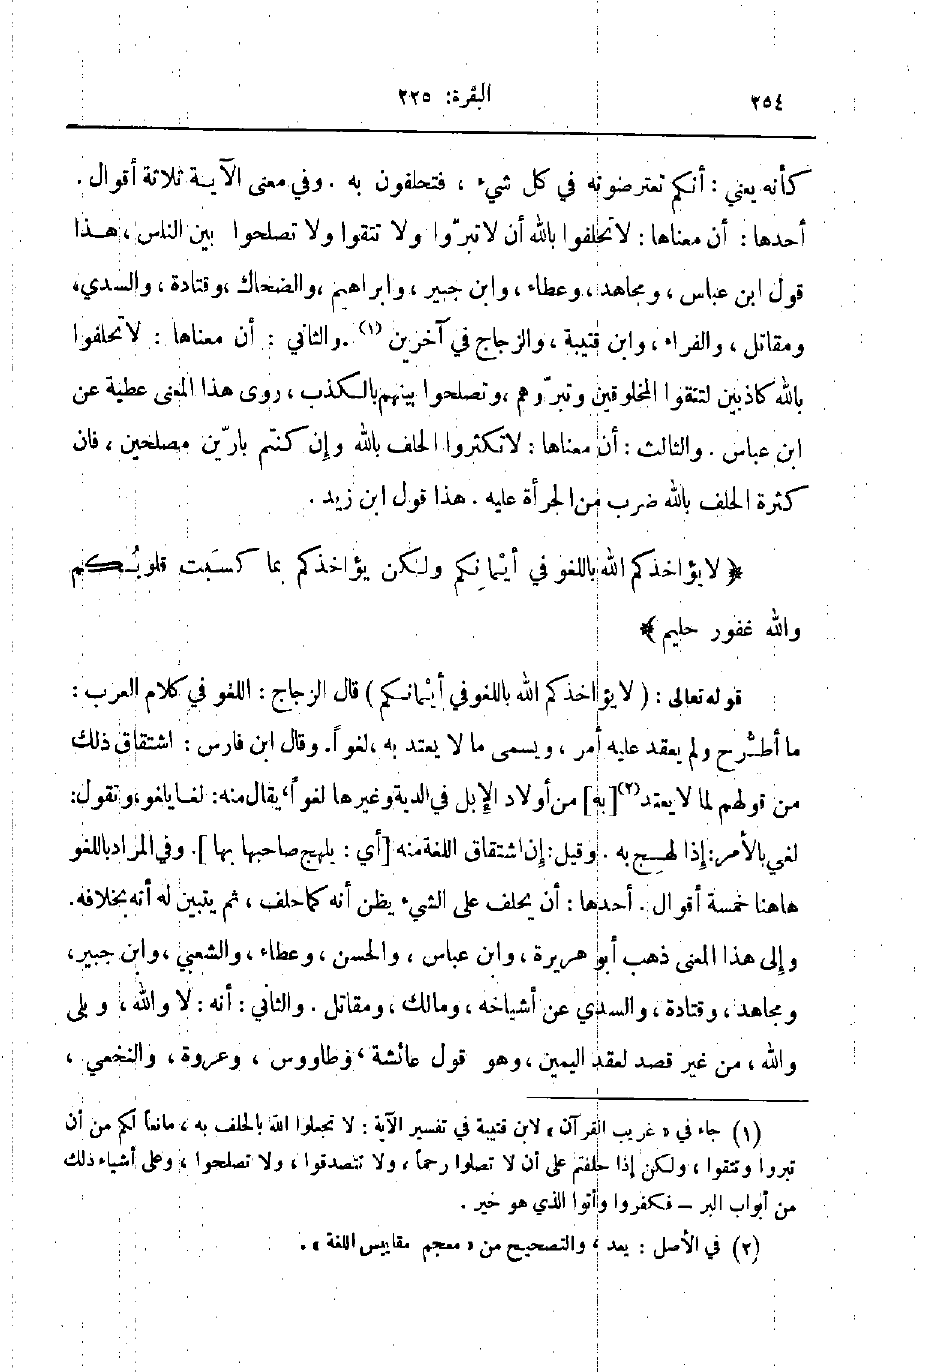 ٢٥٤
البقرة: ٢٢٥
كأنه يعني : أنكم تعترضونه في كل شيء ، فتحلفون به . وفي معنى الآية ثلاثة أقوال .
أحدها : أن معناها : لا تحلفوا بالله أن لا تبرّوا ولا تتقوا ولا تصلحوا بين الناس ، هذا
قول ابن عباس ، ومجاهد ، وعطاء ، وابن جبير ، وابراهيم ، والضحاك ، وقتادة ، والسدي ،
ومقاتل ، والفراء ، وابن قتيبة ، والزجاج في آخرين (١) . والثاني : أن معناها : لا تحلفوا
بالله كاذبين لتتقوا المخلوقين وتبرّوهم ، وتصلحوا بينهم بالكذب ، روى هذا المعنى عطية عن
ابن عباس . والثالث : أن معناها : لا تكثروا الحلف بالله وإن كنتم بارّين مصلحين ، فان
كثرة الحلف بالله ضرب من الجرأة عليه . هذا قول ابن زيد .
﴿ لا يؤاخذكم الله باللغو في أيْمانِكم ولكن يؤاخذكم بما كسَبَت قلوبُكم
والله غفور حليم ﴾
قوله تعالى : ( لا يؤاخذكم الله باللغو في أيْمانكم ) قال الزجاج : اللغو في كلام العرب :
ما أُطّرح ولم يعقد عليه أمر ، ويسمى ما لا يعتد به ، لغواً . وقال ابن فارس : اشتقاق ذلك
من قولهم لما لا يعتد (٢) [به] من أولاد الإبل في الدية وغيرها لغواً ، يقال منه : لغا يلغو ، وتقول :
لغي بالأمر : إذا لهج به . وقيل : إن اشتقاق اللغة منه [أي : يلهج صاحبها بها] . وفي المراد باللغو
هاهنا خمسة أقوال . أحدها : أن يحلف على الشيء يظن أنه كما حلف ، ثم يتبين له أنه بخلافه .
وإلى هذا المعنى ذهب أبو هريرة ، وابن عباس ، والحسن ، وعطاء ، والشعبي ، وابن جبير ،
ومجاهد ، وقتادة ، والسدي عن أشياخه ، ومالك ، ومقاتل . والثاني : أنه : لا والله ، وبلى
والله ، من غير قصد لعقد اليمين ، وهو قول عائشة ، وطاووس ، وعروة ، والنخعي ،
(١) جاء في « غريب القرآن » لابن قتيبة في تفسير الآية : لا تجعلوا الله بالحلف به ، مانعاً لكم من أن
تبروا وتتقوا ، ولكن إذا حلفتم على أن لا تصلوا رحماً ، ولا تتصدقوا ، ولا تصلحوا ، وعلى أشياء ذلك
من أبواب البر – فكفروا وأتوا الذي هو خير .
(٢) في الأصل : يعد ، والتصحيح من « معجم مقاييس اللغة » .